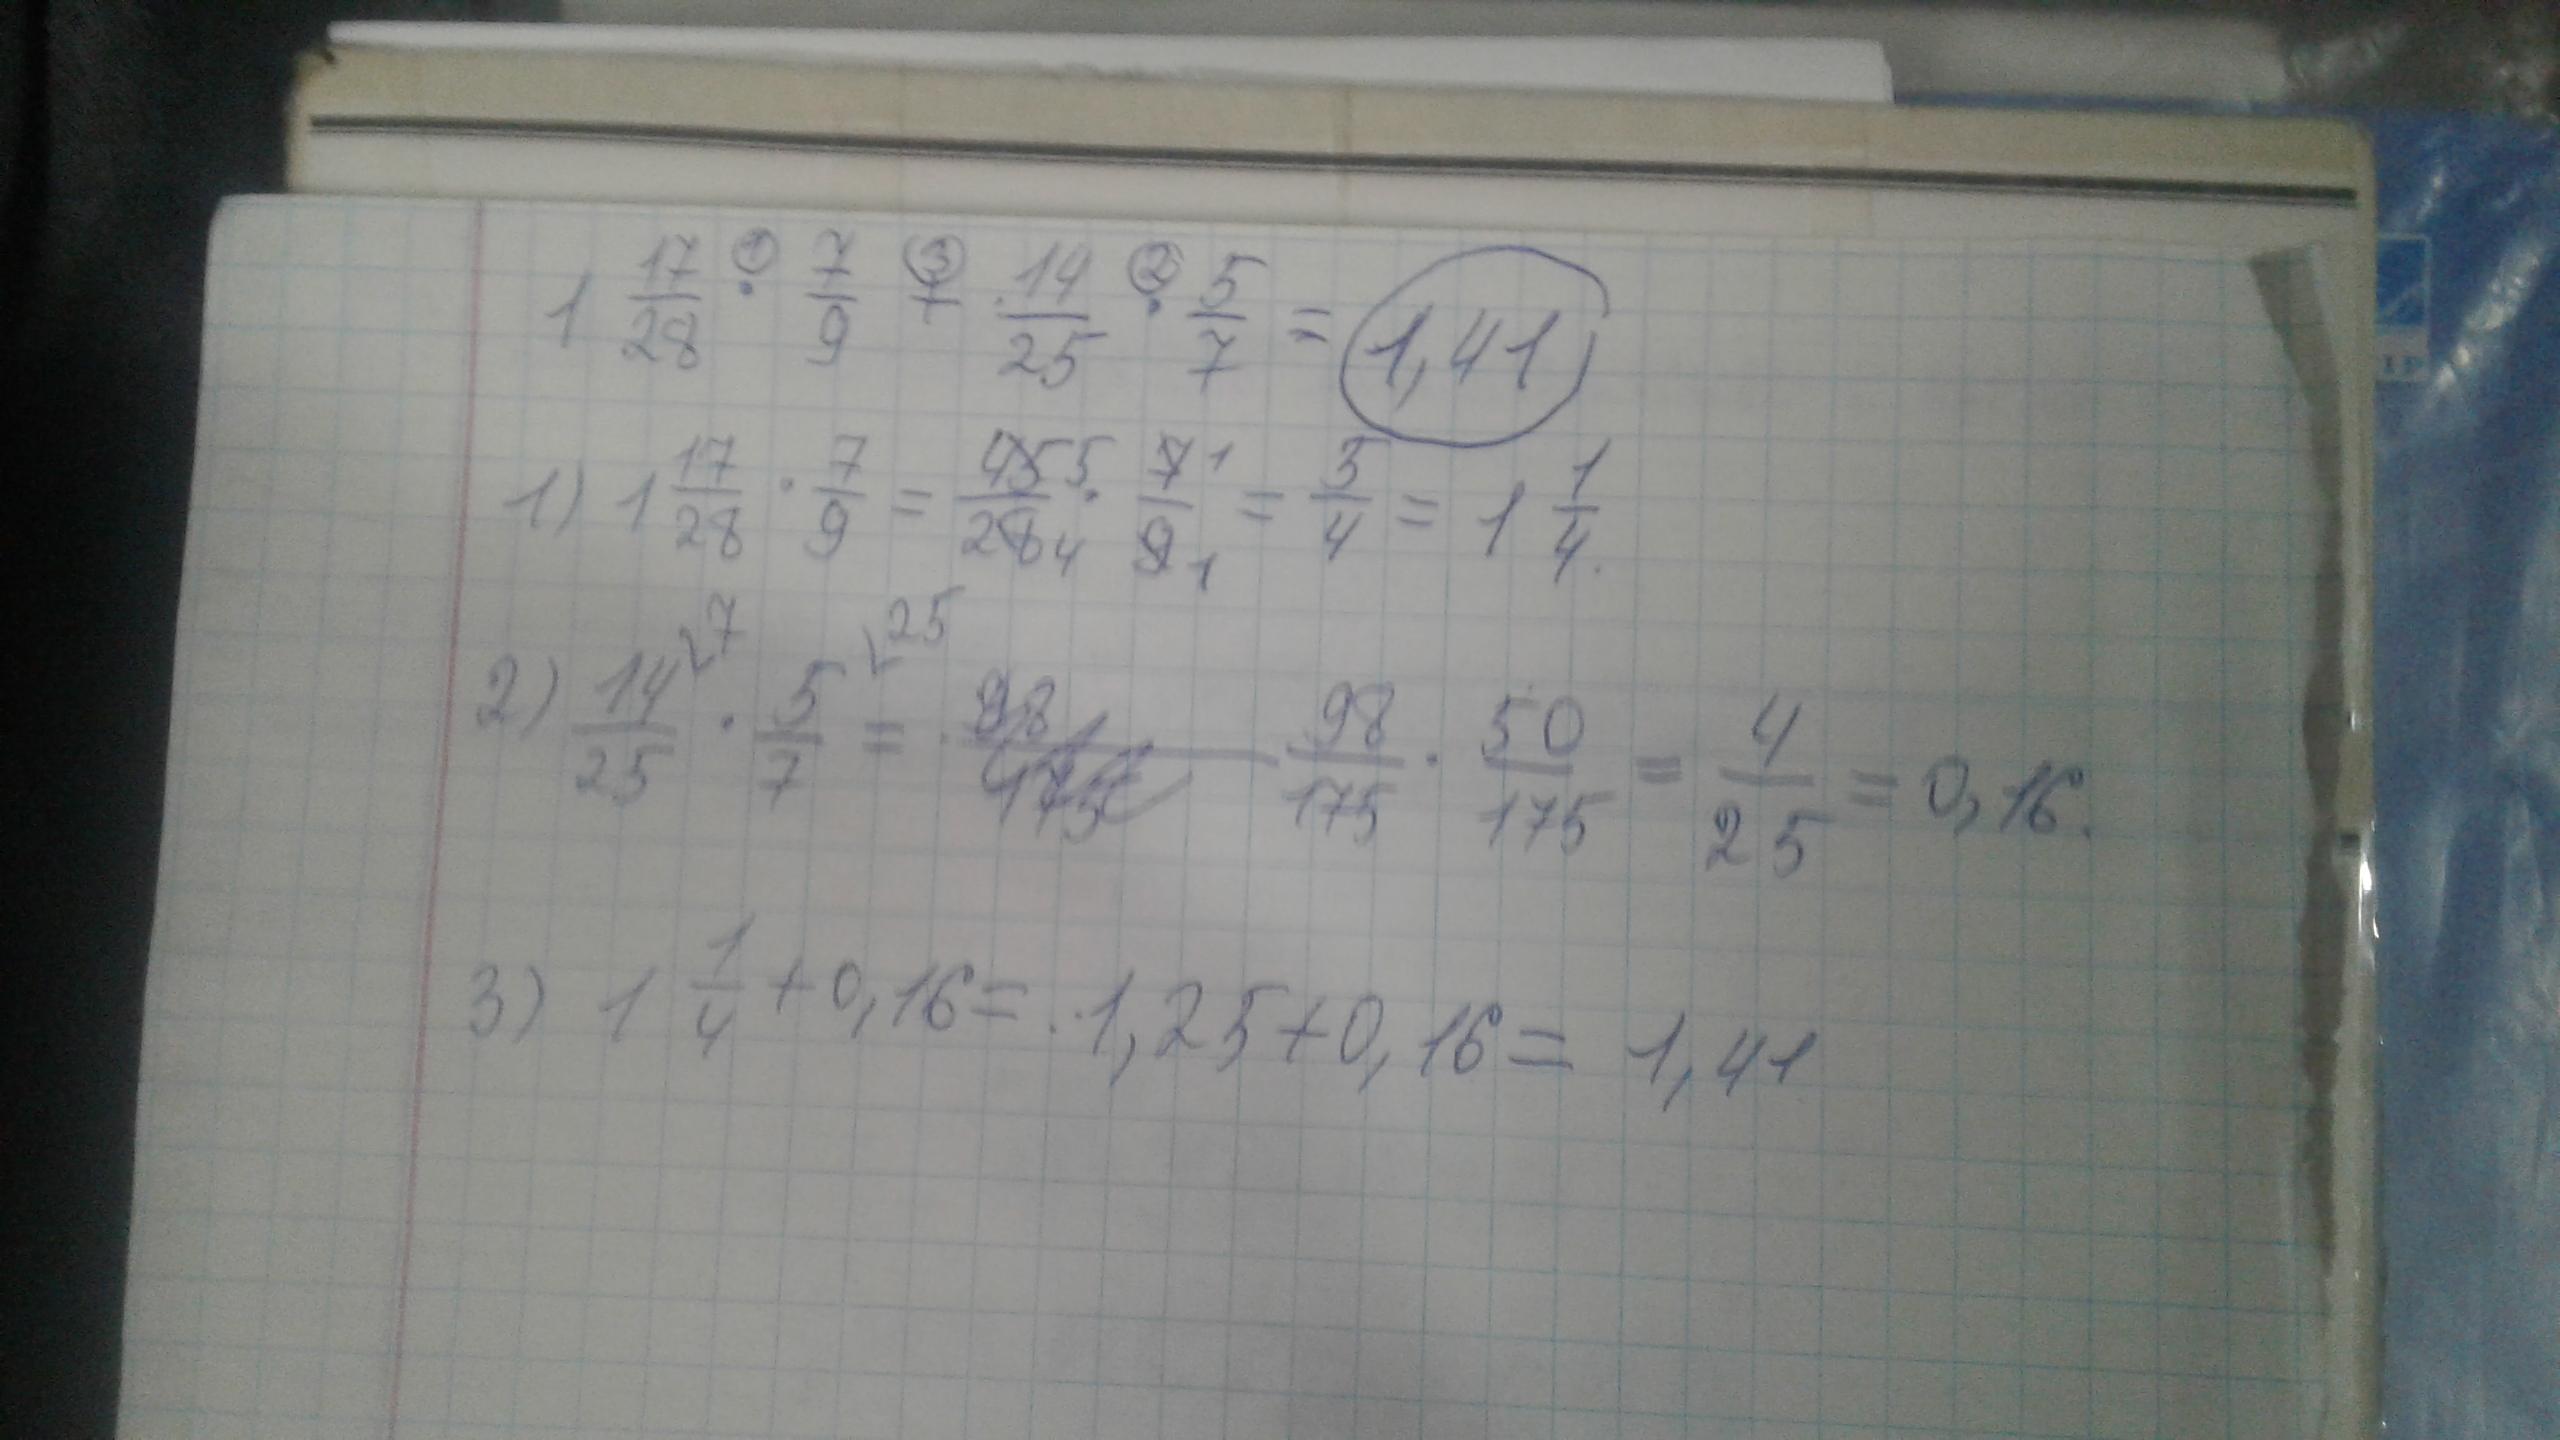 1 17/28 ① · 7/9 ③ + 14/25 ② · 5/7 = 1,41
1) 1 17/28 · 7/9 = 45 5/28 4 · 7 1/9 1 = 5/4 = 1 1/4.
2) 14/25 ∟7 · 5/7 ∟25 = 98/175 98/175 · 50/175 = 4/25 = 0,16.
3) 1 1/4 + 0,16 = 1,25 + 0,16 = 1,41